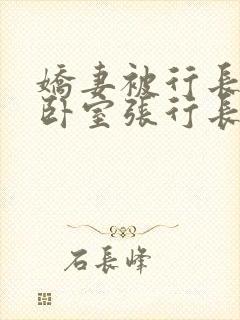 嬌妻被行長
卧室張行長
石長峰